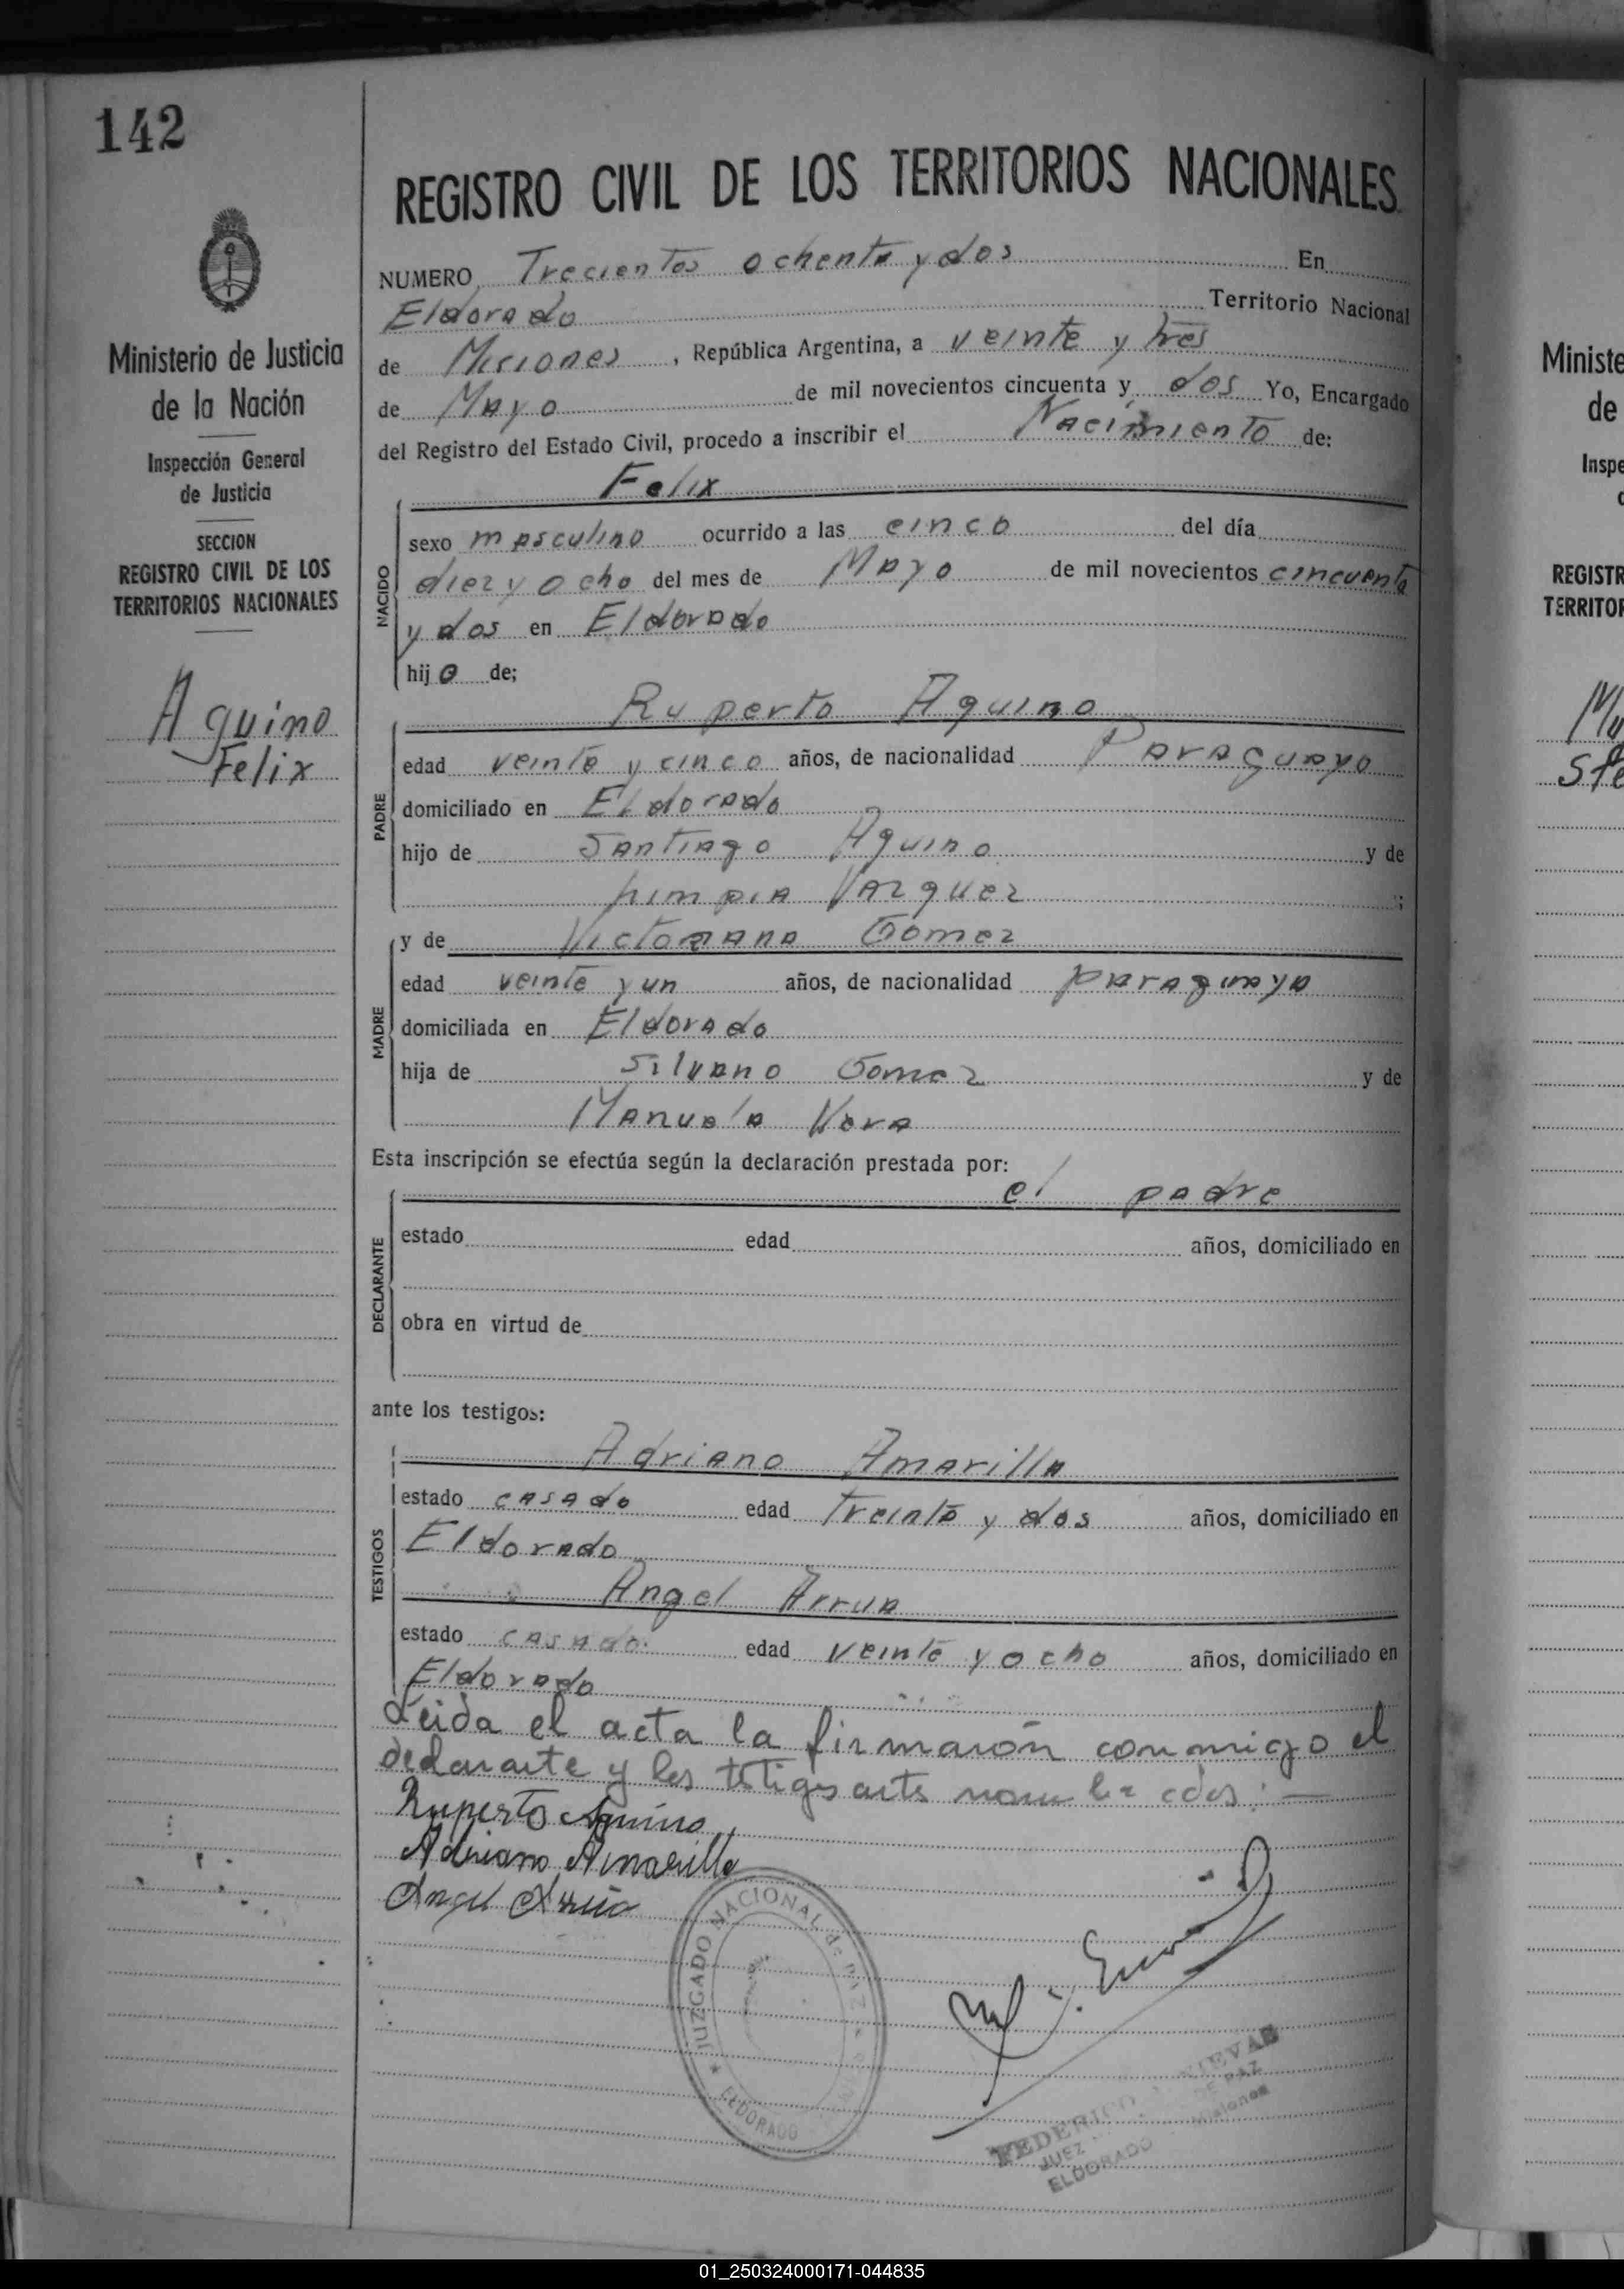 142
REGISTRO CIVIL DE LOS TERRITORIOS NACIONALES
Ministerio de Justicia
de la Nación
Inspección General
de Justicia
SECCION
REGISTRO CIVIL DE LOS
TERRITORIOS NACIONALES
Aquino
Felix
NUMERO Trecientos ochenta y dos En
Eldorado Territorio Nacional
de Misiones, República Argentina, a veinte y tres
de Mayo de mil novecientos cincuenta y dos Yo, Encargado
del Registro del Estado Civil, procedo a inscribir el Nacimiento de:
Felix
NACIDO
sexo masculino ocurrido a las cinco del día
diez y ocho del mes de Mayo de mil novecientos cincuenta
y dos en Eldorado
hijo de;
Ruperto Aquino
PADRE
edad veinte y cinco años, de nacionalidad Paraguayo
domiciliado en Eldorado
hijo de Santiago Aquino y de
Limpia Vazquez ;
y de Victoriana Gomez
MADRE
edad veinte y un años, de nacionalidad paraguaya
domiciliada en Eldorado
hija de Silvano Gomez y de
Manuela Vera
Esta inscripción se efectúa según la declaración prestada por:
el padre
DECLARANTE
estado edad años, domiciliado en
obra en virtud de
ante los testigos:
Adriano Amarilla
TESTIGOS
estado casado edad treinta y dos años, domiciliado en
Eldorado
Angel Arrua
estado casado edad veinte y ocho años, domiciliado en
Eldorado
Leida el acta la firmarón conmigo el
declarante y los testigos ante nombrados: —
Ruperto Aquino
Adriano Amarilla
Angel Arrúa
JUZGADO NACIONAL de PAZ
ELDORADO
FEDERICO
JUEZ DE PAZ
ELDORADO Misiones
Ministe
de
Inspe
REGISTR
TERRITOR
01_250324000171-044835